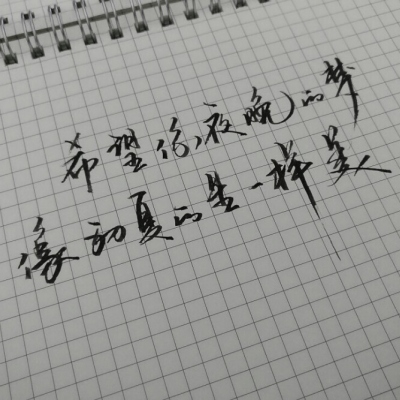 希望你,夜晚的梦
像初夏的星一样美